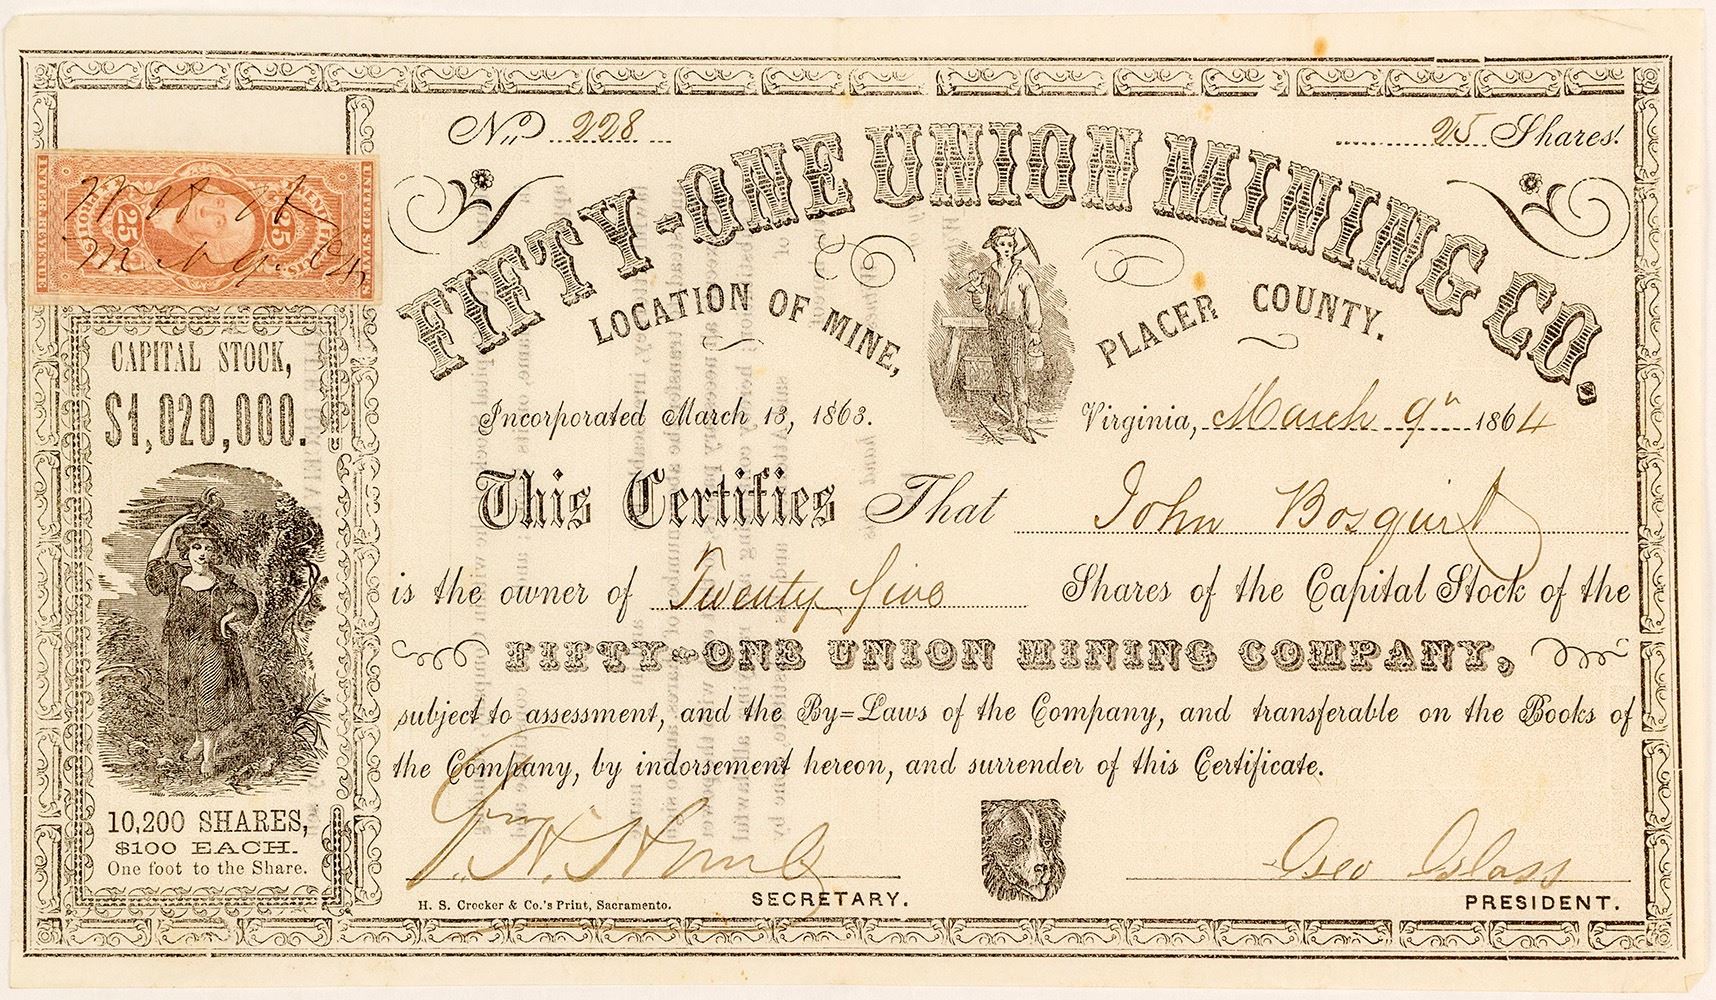 No. 228
25 Shares.
FIFTY-ONE UNION MINING CO.
LOCATION OF MINE, PLACER COUNTY.
Incorporated March 13, 1863.
Virginia, March 9th 1864
This Certifies That John Bosquit
is the owner of Twenty five Shares of the Capital Stock of the
FIFTY-ONE UNION MINING COMPANY,
subject to assessment, and the By=Laws of the Company, and transferable on the Books of
the Company, by indorsement hereon, and surrender of this Certificate.
SECRETARY.
Geo Glass
PRESIDENT.
H. S. Crocker & Co.'s Print, Sacramento.
UNITED STATES
INTER. REVENUE
25 25
CAPITAL STOCK,
$1,020,000.
10,200 SHARES,
$100 EACH.
One foot to the Share.